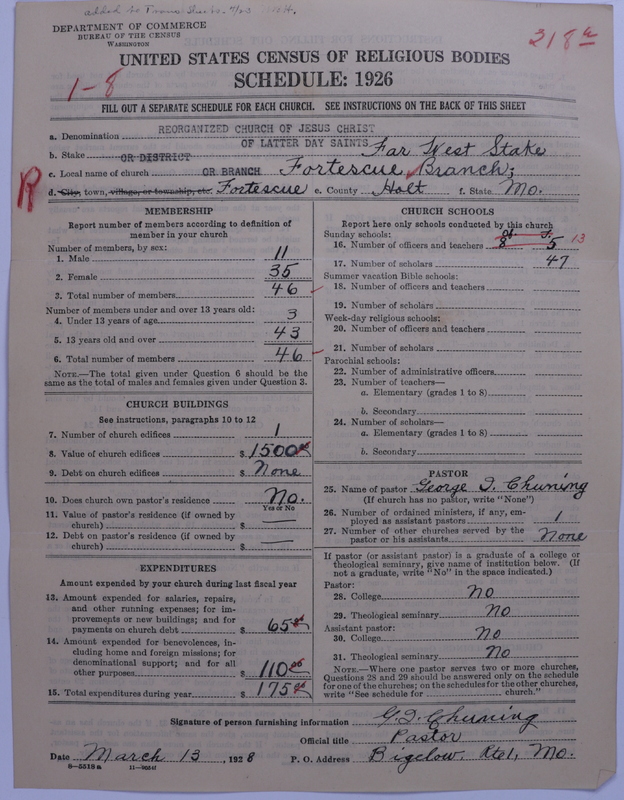 added to Trans. Sheets 7/23 H.
DEPARTMENT OF COMMERCE
BUREAU OF THE CENSUS
WASHINGTON
318a
UNITED STATES CENSUS OF RELIGIOUS BODIES
1-8
SCHEDULE: 1926
FILL OUT A SEPARATE SCHEDULE FOR EACH CHURCH. SEE INSTRUCTIONS ON THE BACK OF THIS SHEET
a. Denomination REORGANIZED CHURCH OF JESUS CHRIST
OF LATTER DAY SAINTS
b. Stake OR DISTRICT Far West Stake
c. Local name of church OR BRANCH Fortescue Branch;
R
d. City, town, village, or township, etc. Fortescue e. County Holt f. State Mo.
MEMBERSHIP
Report number of members according to definition of
member in your church
Number of members, by sex:
1. Male 11
2. Female 35
3. Total number of members 46
Number of members under and over 13 years old:
4. Under 13 years of age 3
5. 13 years old and over 43
6. Total number of members 46
NOTE.—The total given under Question 6 should be
same as the total of males and females given under Question 3.
CHURCH BUILDINGS
See instructions, paragraphs 10 to 12
7. Number of church edifices 1
8. Value of church edifices $ 1500 00
9. Debt on church edifices $ None
10. Does church own pastor's residence No.
Yes or No
11. Value of pastor's residence (if owned by
church) $ —
12. Debt on pastor's residence (if owned by
church) $ —
EXPENDITURES
Amount expended by your church during last fiscal year
13. Amount expended for salaries, repairs,
and other running expenses; for im-
provements or new buildings; and for
payments on church debt $ 65
14. Amount expended for benevolences, in-
cluding home and foreign missions; for
denominational support; and for all
other purposes $ 110 00
15. Total expenditures during year $ 175 00
CHURCH SCHOOLS
Report here only schools conducted by this church
Sunday schools:
16. Number of officers and teachers 8 5 13
17. Number of scholars 47
Summer vacation Bible schools:
18. Number of officers and teachers
19. Number of scholars
Week-day religious schools:
20. Number of officers and teachers
21. Number of scholars
Parochial schools:
22. Number of administrative officers
23. Number of teachers—
a. Elementary (grades 1 to 8)
b. Secondary
24. Number of scholars—
a. Elementary (grades 1 to 8)
b. Secondary
PASTOR
25. Name of pastor George I. Chuning
(If church has no pastor, write "None")
26. Number of ordained ministers, if any, em-
ployed as assistant pastors 1
27. Number of other churches served by the
pastor or his assistants None
If pastor (or assistant pastor) is a graduate of a college or
theological seminary, give name of institution below. (If
not a graduate, write "No" in the space indicated.)
Pastor:
28. College No
29. Theological seminary No
Assistant pastor:
30. College No
31. Theological seminary No
NOTE.—Where one pastor serves two or more churches,
Questions 28 and 29 should be answered only on the schedule
for one of the churches; on the schedules for the other churches,
write "See schedule for church."
Signature of person furnishing information G. I. Chuning
Official title Pastor
Date March 13, 1928 P. O. Address Bigelow Rte1, Mo.
8—5518a